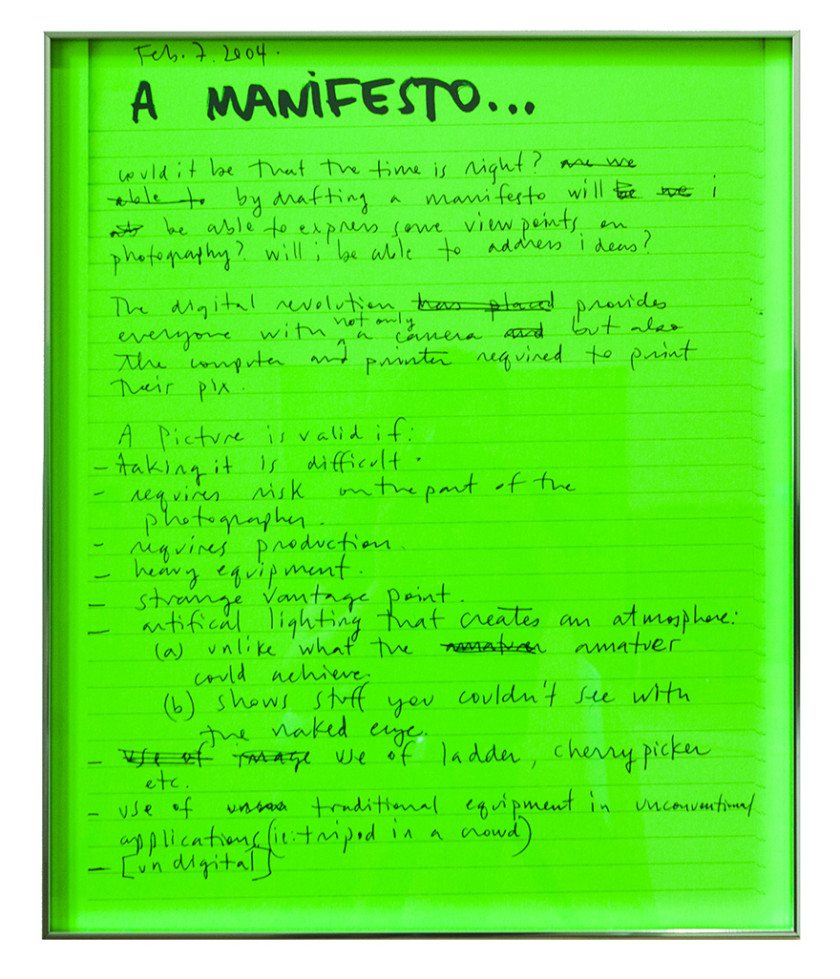 Feb. 7. 2004.
A MANiFESTO...
could it be that the time is right? are we
able to by drafting a manifesto will be we i
be able to express some viewpoints on
photography? will i be able to address ideas?
The digital revolution has placed provides
everyone with not only a camera and but also
the computer and printer required to print
their pix.
A Picture is valid if:
- taking it is difficult.
- requires risk on the part of the
photographer.
- requires production.
- heavy equipment.
- strange vantage point.
- artifical lighting that creates an atmosphere:
(a) unlike what the amatuer amatuer
could achieve.
(b) shows stuff you couldn't see with
the naked eye.
- use of image use of ladder, cherry picker
etc.
- use of traditional equipment in unconventional
applications (ie: tripod in a crowd)
- [un digital]